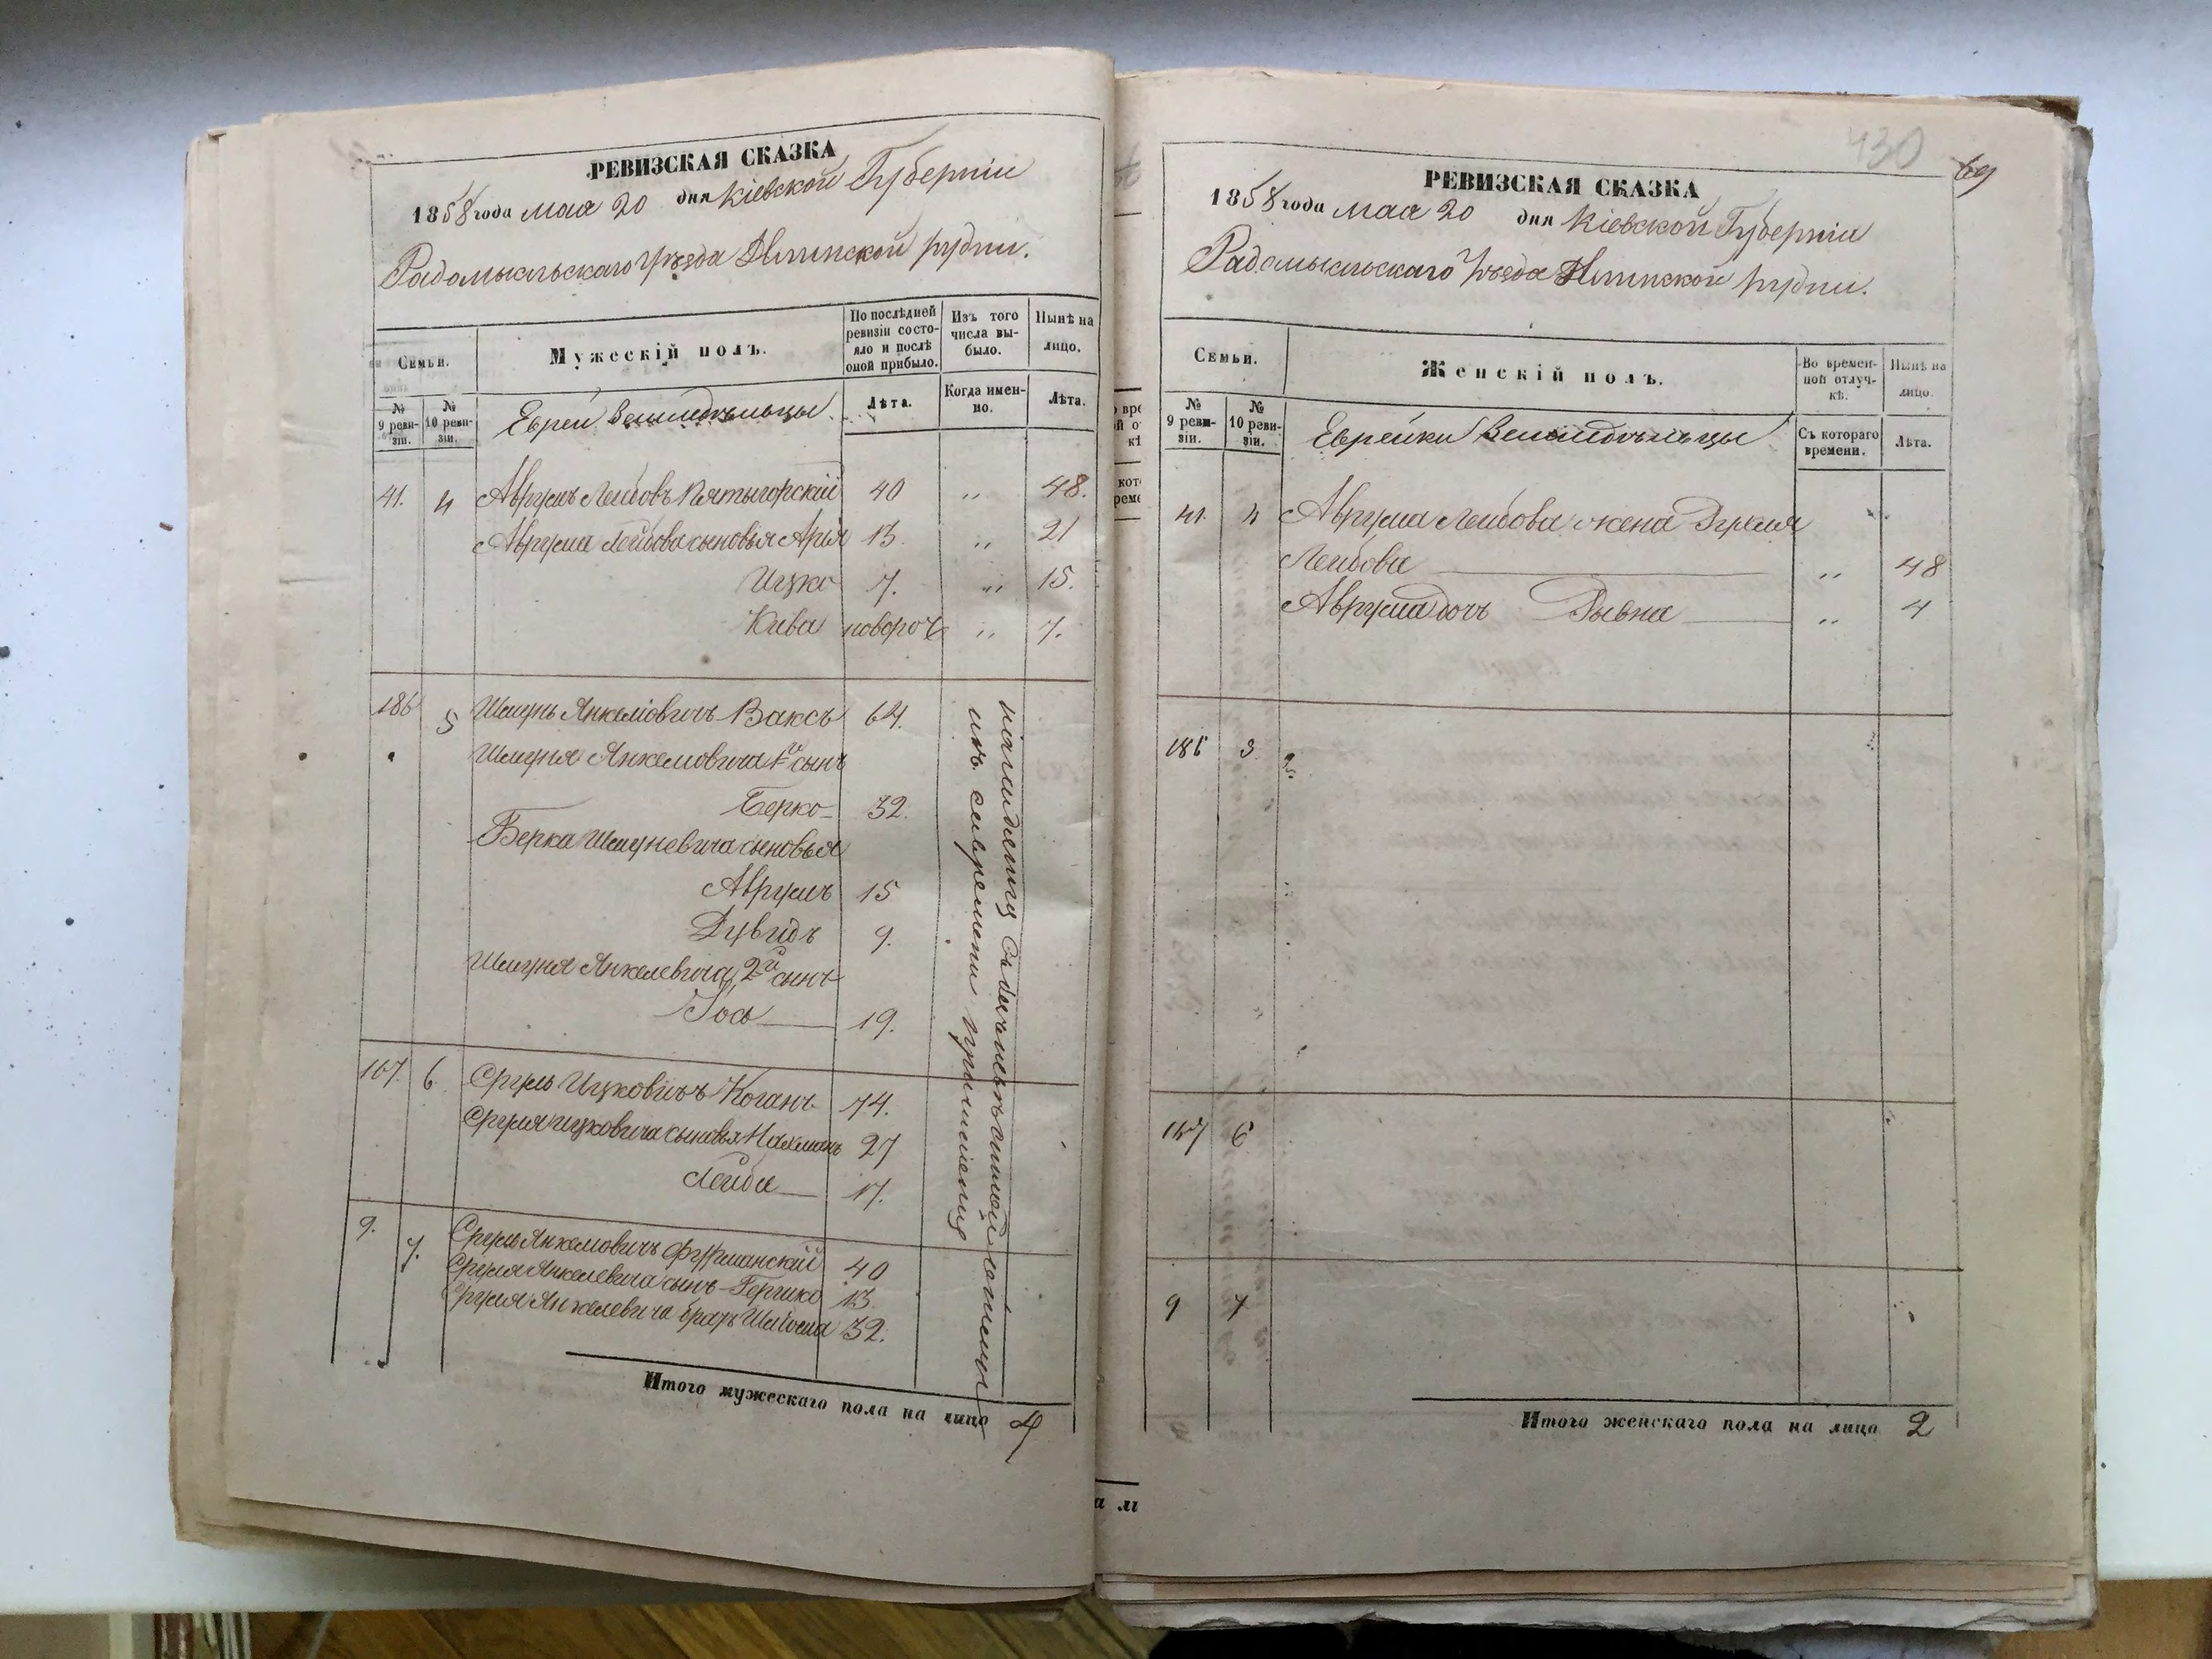 РЕВИЗСКАЯ СКАЗКА
1858 года мая 20 дня Кіевской Губерніи
Радомысльскаго Уѣзда рудни.
Семьи.
Мужескій полъ.
По послѣдней ревизіи состояло и послѣ оной прибыло.
Изъ того числа выбыло.
Нынѣ на лицо.
№ 9 ревизіи.
№ 10 ревизіи.
Евреи Земледѣльцы.
Лѣта.
Когда именно.
Лѣта.
41. 4 Аврумъ Лейбовъ Пятыгорскій 40 „ 48.
Аврума Лейбова сыновья Арья 13. „ 21
Ицко 7. „ 15.
Кива новорож „ 7.
186 5 Шмунь Анкеліовичъ Ваксъ 64.
Шмуня Анкелиовича 1й сынъ
Берко 32.
Берка Шмуневича сыновья
Аврумъ 15
Дувидъ 9.
Шмуня Анкелевича 2й сынъ
Іось 19.
нъ съ времени
187. 6 Сруль Ицковичъ Коганъ 74.
Сруля Ицковича сыновья Нахманъ 27
Лейба 17.
9. 7. Сруль Анкелиовичъ Фурманскій 40
Сруля Анкелевича сынъ Гершко 13.
Сруля Анкелевича братъ 32.
Итого мужескаго пола на лицо 4
430
69
РЕВИЗСКАЯ СКАЗКА
1858 года мая 20 дня Кіевской Губерніи
Радомысльскаго Уѣзда рудни.
Семьи.
Женскій полъ.
Во временной отлучкѣ.
Нынѣ на лицо.
№ 9 ревизіи.
№ 10 ревизіи.
Еврейки Земледѣльцы
Съ котораго времени.
Лѣта.
41. 4 Аврума Лейбова жена
Лейбова „ 48
Аврума дочь Рывка „ 4
186 5
187 6
9 7
Итого женскаго пола на лицо 2